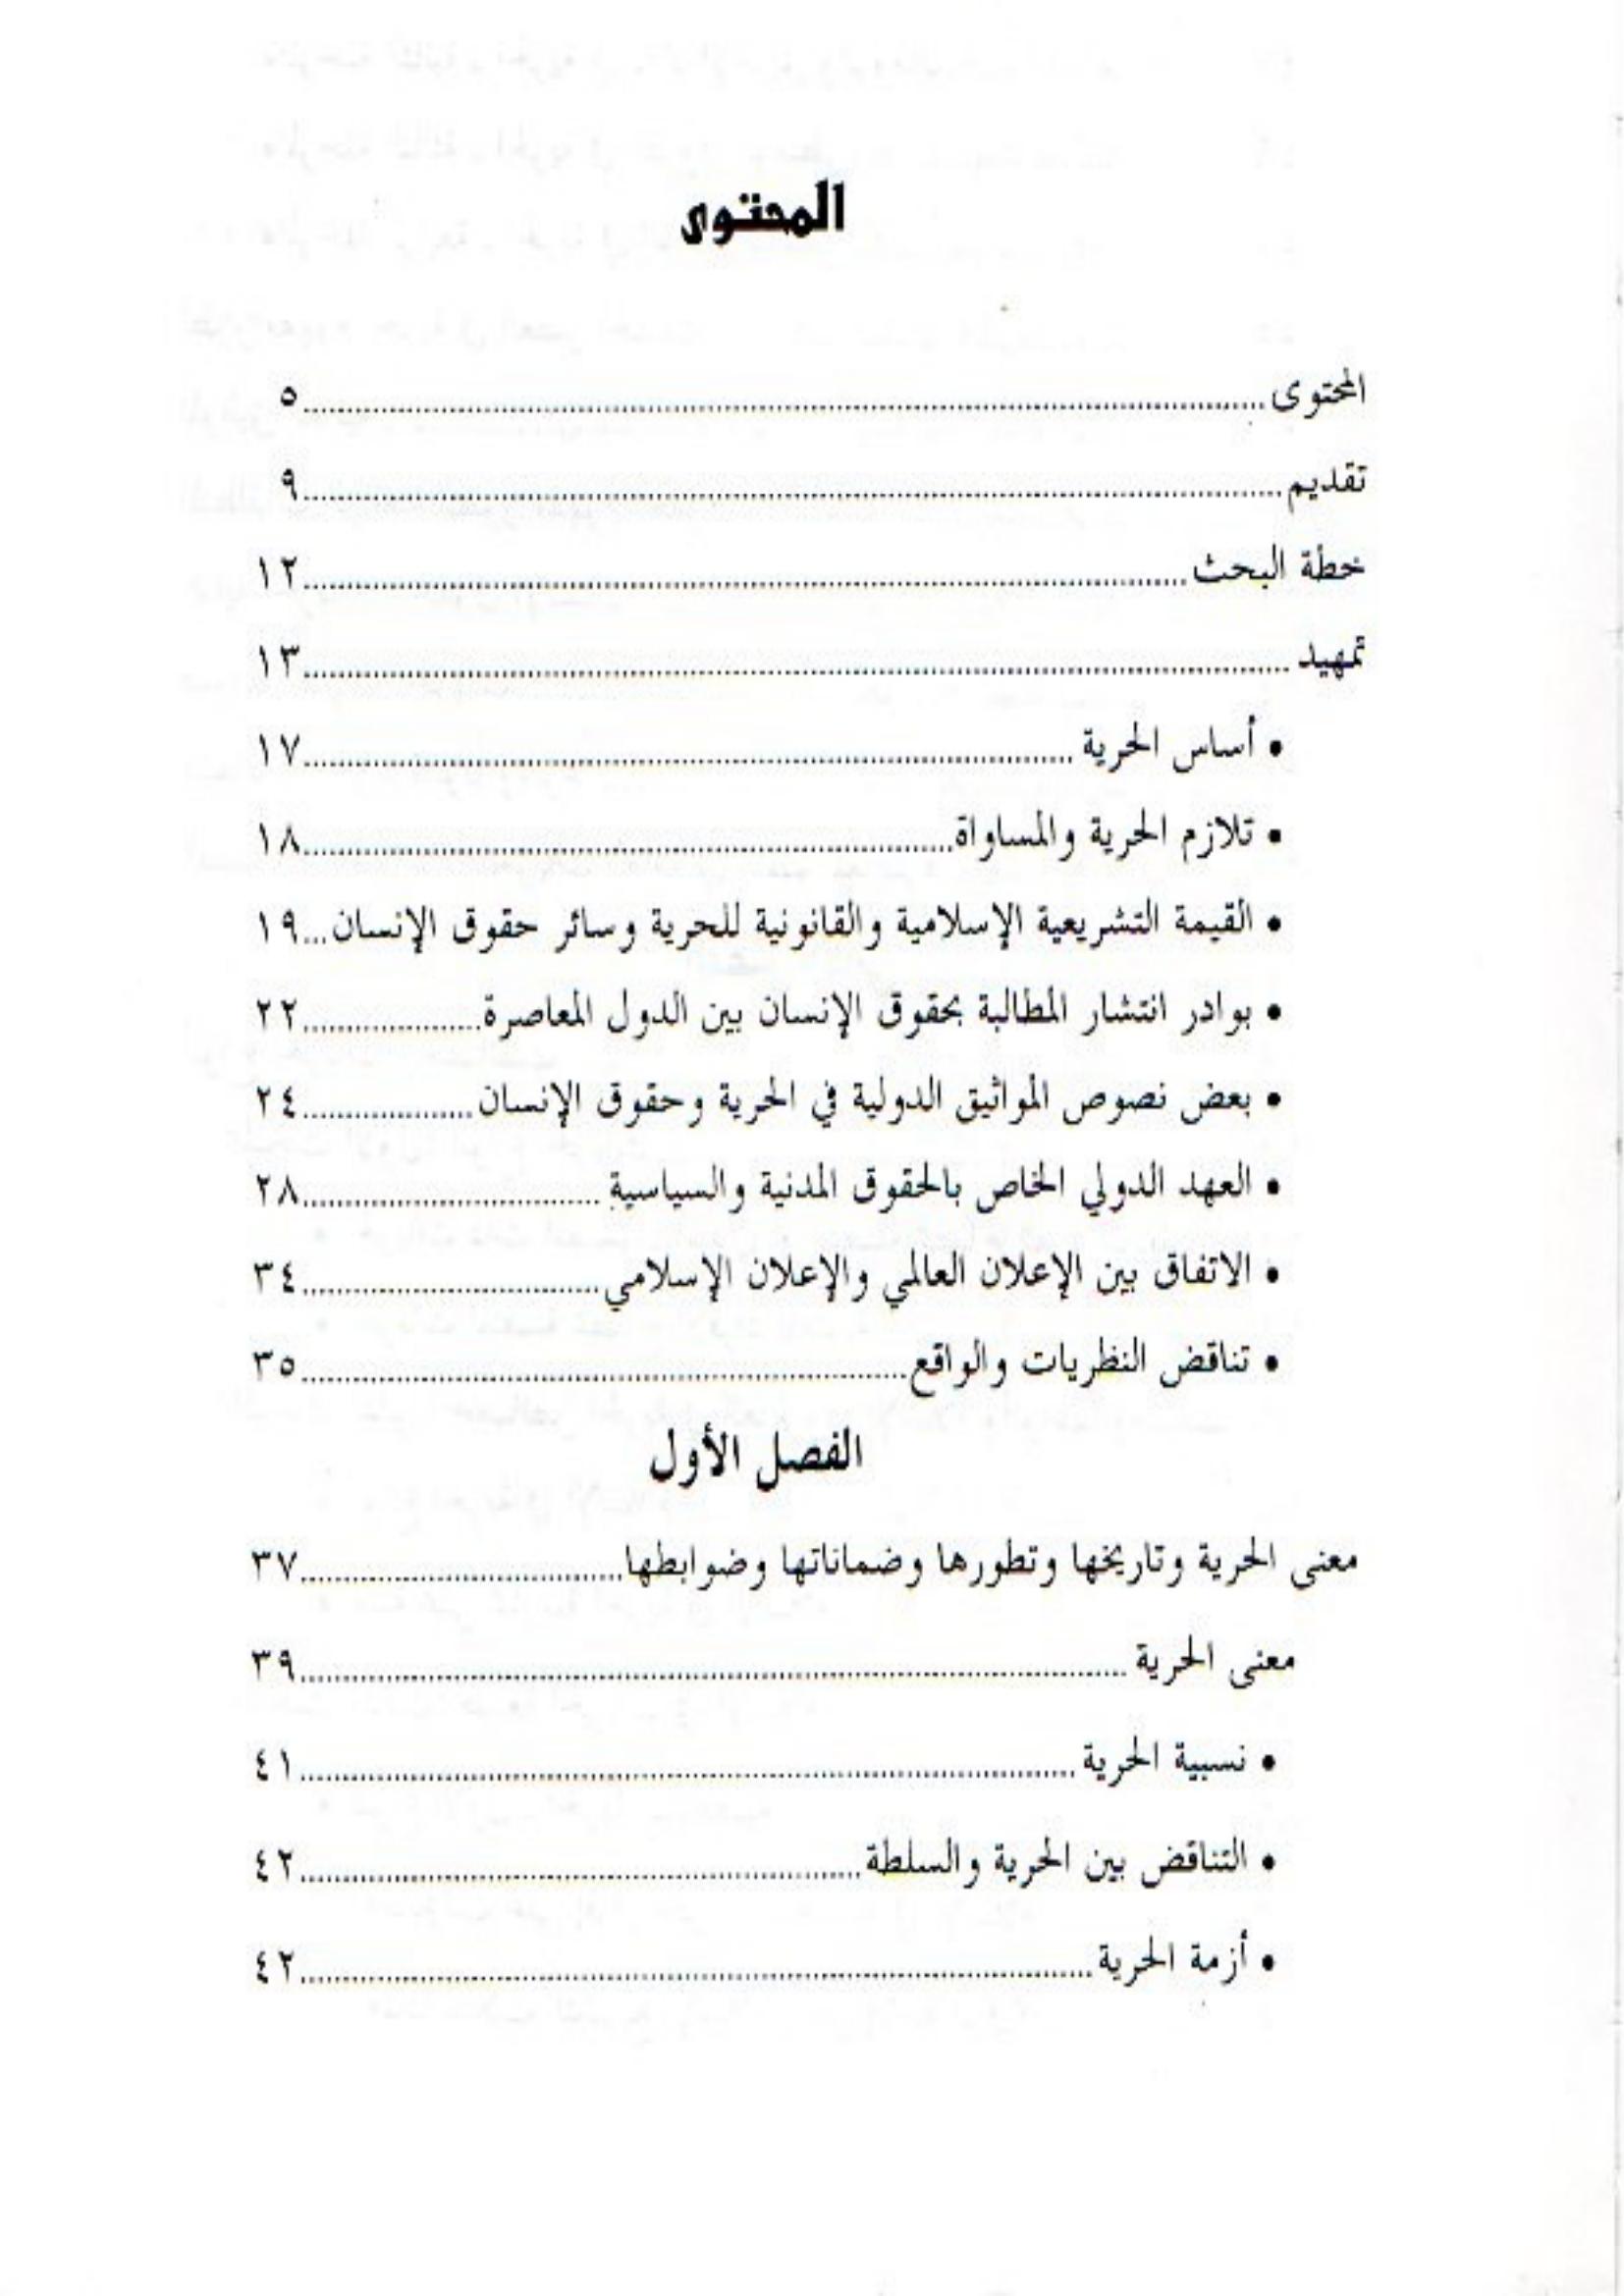 المحتوى
المحتوى ٥
تقديم ٩
خطة البحث ١٢
تمهيد ١٣
• أساس الحرية ١٧
• تلازم الحرية والمساواة ١٨
• القيمة التشريعية الإسلامية والقانونية للحرية وسائر حقوق الإنسان ١٩
• بوادر انتشار المطالبة بحقوق الإنسان بين الدول المعاصرة ٢٢
• بعض نصوص المواثيق الدولية في الحرية وحقوق الإنسان ٢٤
• العهد الدولي الخاص بالحقوق المدنية والسياسية ٢٨
• الاتفاق بين الإعلان العالمي والإعلان الإسلامي ٣٤
• تناقض النظريات والواقع ٣٥
الفصل الأول
معنى الحرية وتاريخها وتطورها وضماناتها وضوابطها ٣٧
معنى الحرية ٣٩
• نسبية الحرية ٤١
• التناقض بين الحرية والسلطة ٤٢
• أزمة الحرية ٤٢